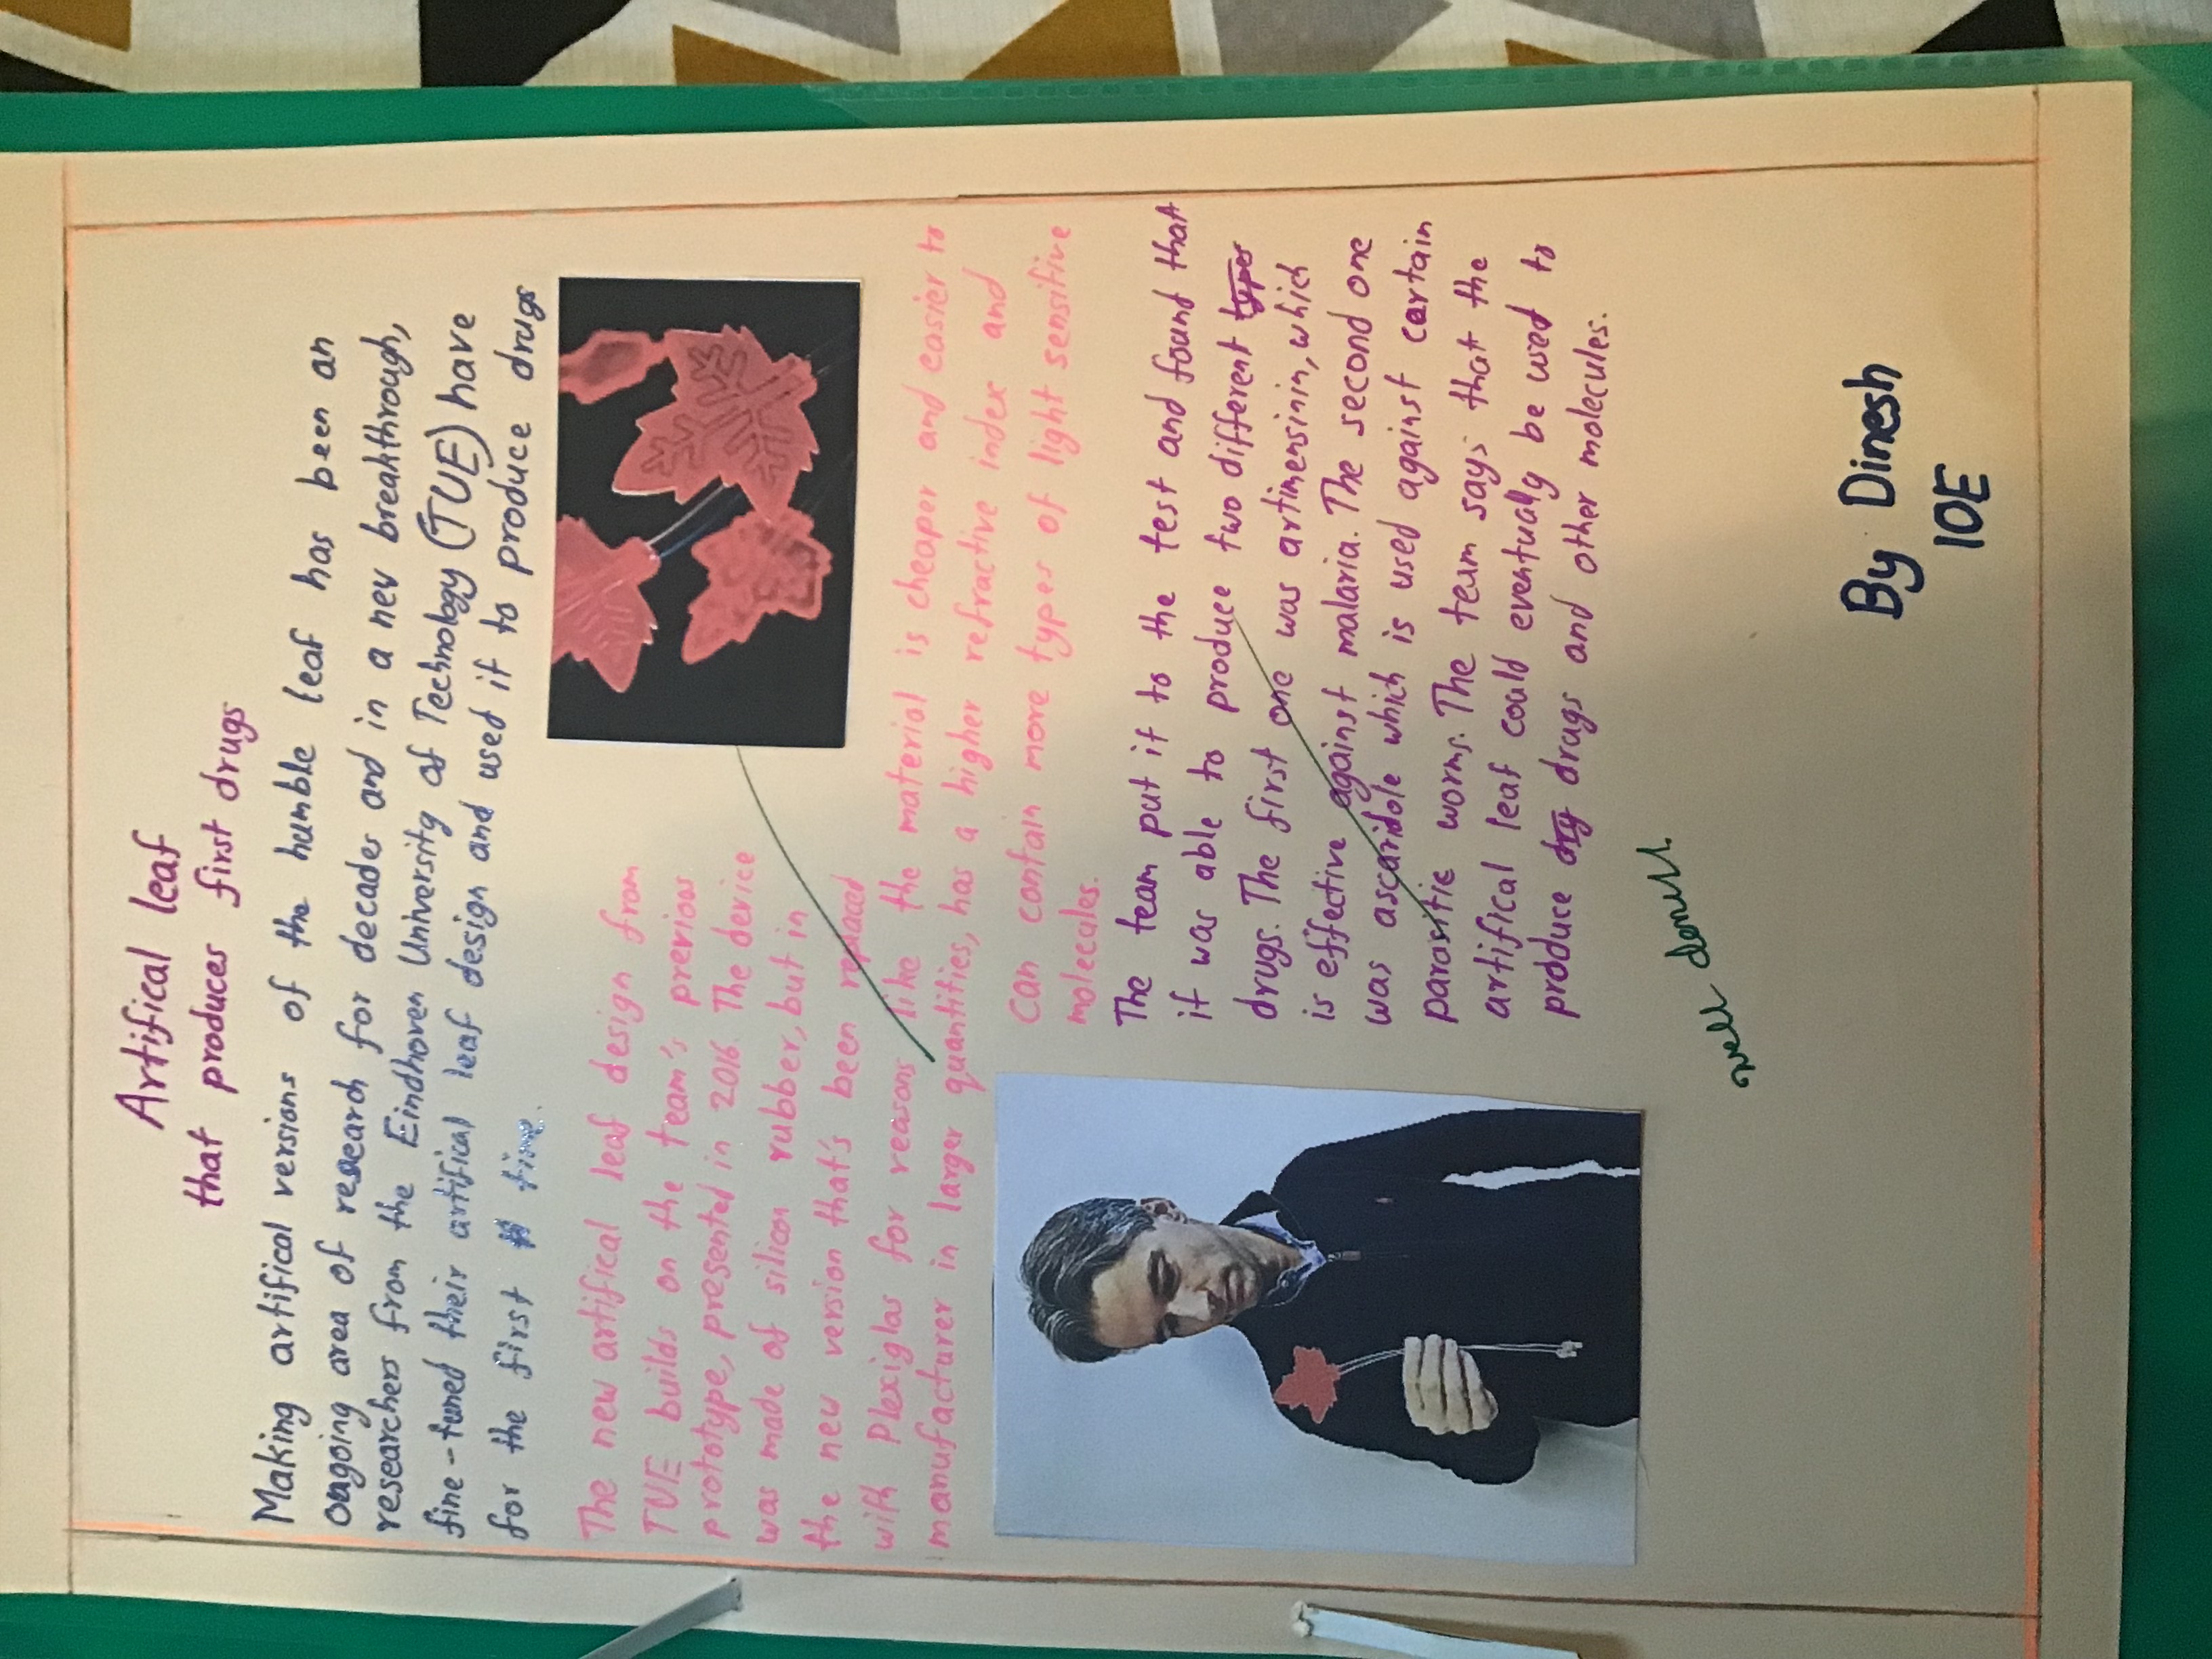 Artifical leaf
that produces first drugs
Making artifical versions of the humble leaf has been an
ongoing area of research for decades and in a new breakthrough,
researchers from the Eindhoven University of Technology (TUE) have
fine-tuned their artifical leaf design and used it to produce drugs
for the first time.
The new artifical leaf design from
TUE builds on the team's previous
prototype, presented in 2016. The device
was made of silicon rubber, but in
the new version that's been replaced
with Plexiglas for reasons like the material is cheaper and easier to
manufacturer in larger quantities, has a higher refractive index and
can contain more types of light sensitive
molecules.
The team put it to the test and found that
it was able to produce two different types
drugs. The first one was artimensinin, which
is effective against malaria. The second one
was ascaridole which is used against certain
parasitic worms. The team says that the
artifical leaf could eventually be used to
produce dry drugs and other molecules.
well done!!!
By Dinesh
10E